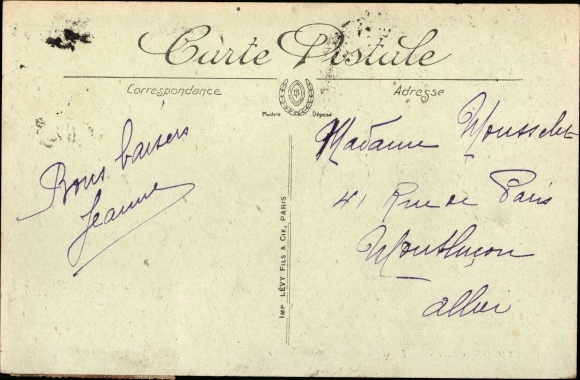 Carte Postale
Correspondance
Adresse
Modèle Déposé
Bons baisers
Jeanne
IMP LÉVY FILS & CIE, PARIS
Madame
41 Rue de Paris
Montluçon
Allier